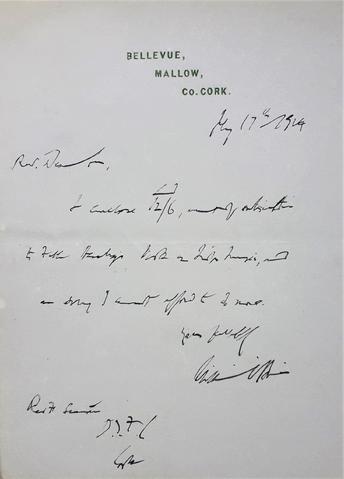 BELLEVUE,
MALLOW,
Co. CORK.
May 17th 1914
Rev. Dear Sir,
I enclose 12/6, amount of subscription
to Father Book on Irish Music, and
am sorry I cannot afford to do more.
Yours faithfully
William O'Brien